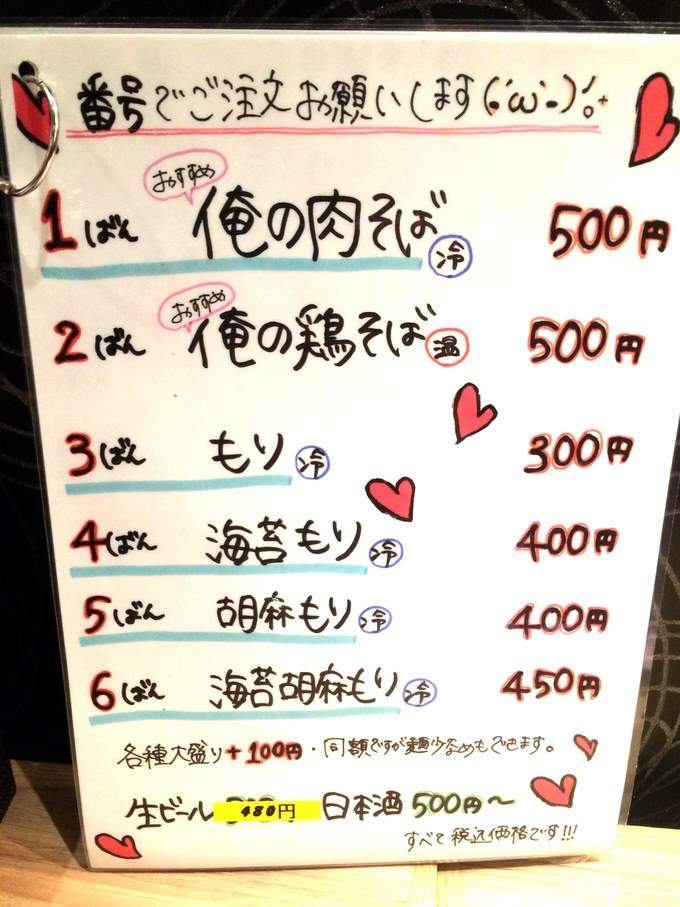 番号でご注文お願いします(・´ω`・)
おすすめ
1ばん 俺の肉そば 冷 500円
おすすめ
2ばん 俺の鶏そば 温 500円
3ばん もり 冷 300円
4ばん 海苔もり 冷 400円
5ばん 胡麻もり 冷 400円
6ばん 海苔胡麻もり 冷 450円
各種大盛り+100円・同額ですが麺少なめもできます。
生ビール 480円 日本酒 500円〜
すべて税込価格です!!!